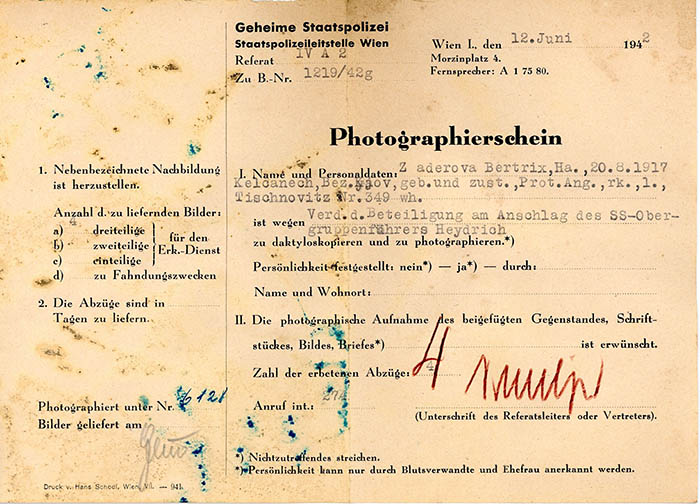 Geheime Staatspolizei
Staatspolizeileitstelle Wien
Referat IV A 2
Zu B.-Nr. 1219/42g
Wien I., den 12.Juni 1942
Morzinplatz 4.
Fernsprecher: A 1 75 80.
Photographierschein
1. Nebenbezeichnete Nachbildung
ist herzustellen.
Anzahl d. zu liefernden Bilder:
4
a) dreiteilige
b) zweiteilige
c) einteilige
für den
Erk.-Dienst
d) zu Fahndungszwecken
2. Die Abzüge sind in
Tagen zu liefern.
Photographiert unter Nr.
Bilder geliefert am
Druck v. Hans Schödl, Wien, VII. — 941.
I. Name und Personaldaten: Z aderova Bertrix,Ha.,20.8.1917
Kelcanech,Bez.Gaov,geb.und zust.,Prot.Ang.,rk.,l.,
Tischnovitz Nr.349 wh.
ist wegen Verd.d.Beteiligung am Anschlag des SS-Ober-
gruppenführers Heydrich
zu daktyloskopieren und zu photographieren.*)
Persönlichkeit festgestellt: nein*) — ja*) — durch:
Name und Wohnort:
II. Die photographische Aufnahme des beigefügten Gegenstandes, Schrift-
stückes, Bildes, Briefes*) ist erwünscht.
Zahl der erbetenen Abzüge: 4
4
Anruf int.: 274
(Unterschrift des Referatsleiters oder Vertreters).
*) Nichtzutreffendes streichen.
*) Persönlichkeit kann nur durch Blutsverwandte und Ehefrau anerkannt werden.